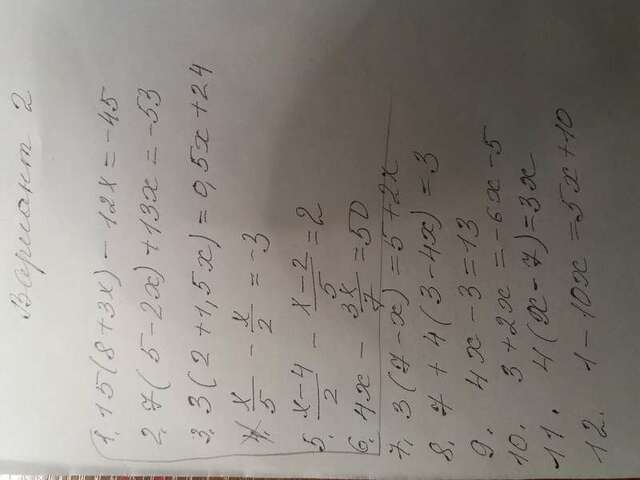 Вариант 2
1. 15(8+3x)-12x=-45
2. 7(5-2x)+13x=-53
3. 3(2+1,5x)=0,5x+24
4. x/5 - x/2 = -3
5. x-4/2 - x-2/5 = 2
6. 4x - 3x/7 = 50
7. 3(7-x)=5+2x
8. 7+4(3-4x)=3
9. 4x-3=13
10. 3+2x=-6x-5
11. 4(x-7)=3x
12. 1-10x=5x+10